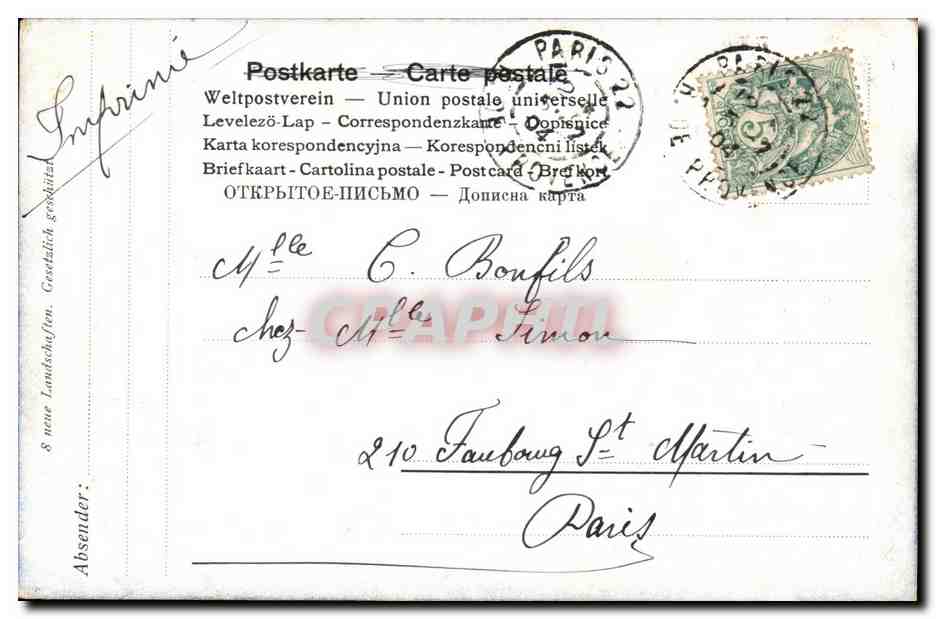 Imprimé
Postkarte — Carte postale
Weltpostverein — Union postale universelle
Levelezö-Lap – Correspondenzkarte – Dopisnice
Karta korespondencyjna — Korespondenčni listek
Briefkaart - Cartolina postale - Post card - Brefkort
ОТКРЫТОЕ-ПИСЬМО — Дописна карта
PARIS 22
04
PARIS 22
5
Mlle C. Bonfils
chez Mlle Simon
CPAPHIL
210 Faubourg St Martin
Paris
8 neue Landschaften. Gesetzlich geschützt.
Absender: